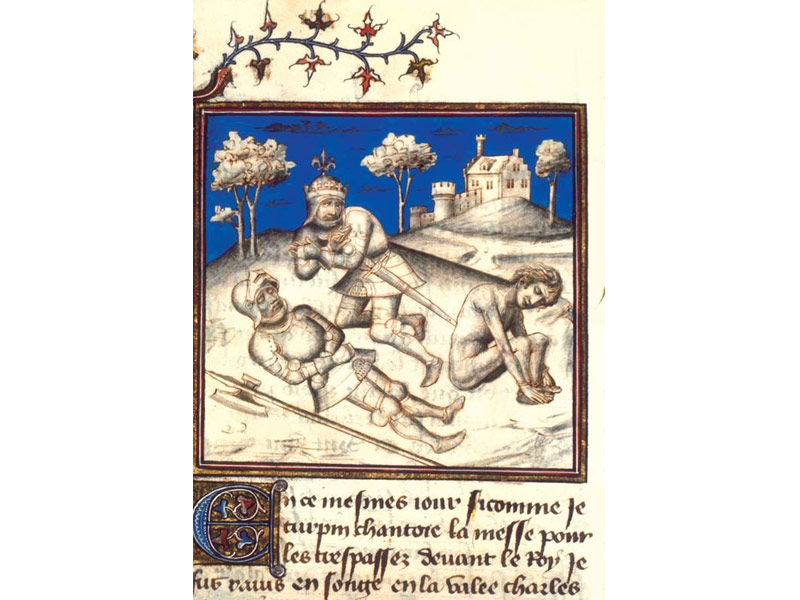 En ce mesmes iour sicomme ie
turpin chantoie la messe pour
les trespassez devant le Roy ie
fut ravis en songe en la valee charles